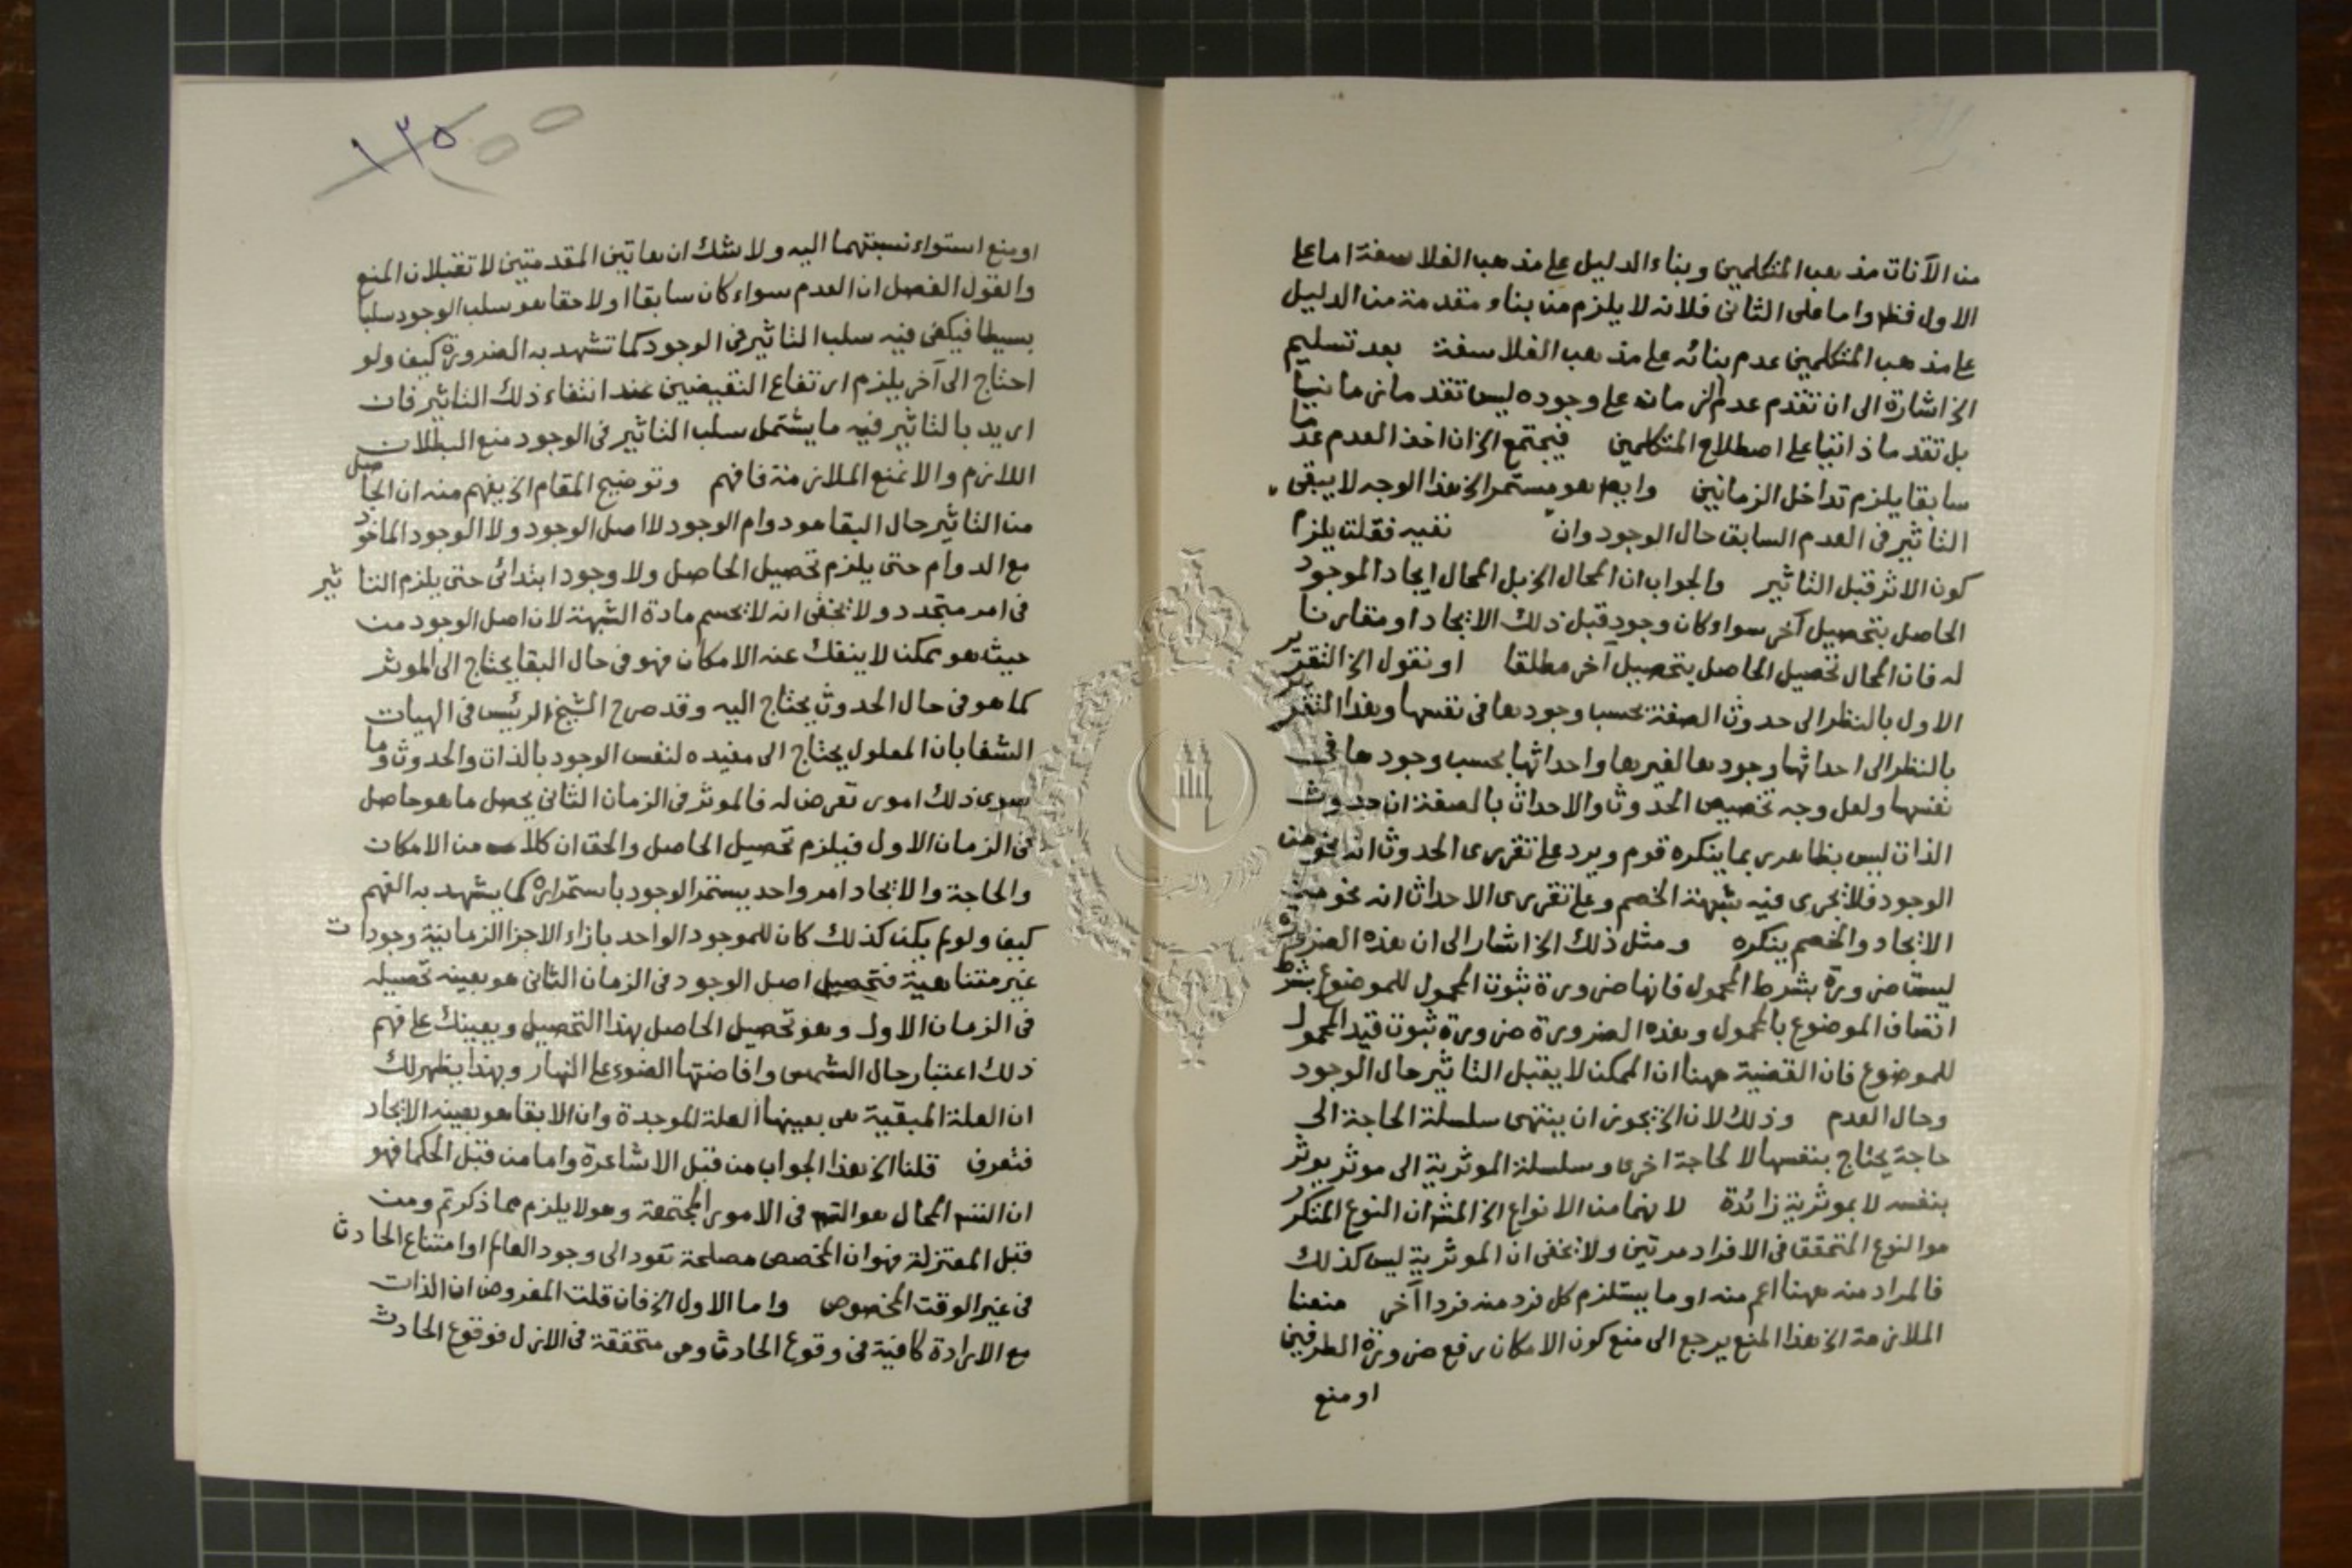 من الآنات مذهب المتكلمين وبناء الدليل على مذهب الفلاسفة اما على
الاول فظ واما على الثانى فلانه لا يلزم من بناء مقدمة من الدليل
على مذهب المتكلمين عدم بنائه على مذهب الفلاسفة بعد تسليم
الخ اشارة الى ان تقدم عدم الزمان على وجوده ليس تقدما زمانيا
بل تقدما ذاتيا على اصطلاح المتكلمين فيجتمع الخ ان اخذ العدم عدما
سابقا يلزم تداخل الزمانين وايضا هو مستمر الخ هذا الوجه لا يبقى
التاثير فى العدم السابق حال الوجود وان نفيه فقلت يلزم
كون الاثر قبل التاثير والجواب ان المحال الخ بل المحال ايجاد الموجود
الحاصل بتحصيل آخر سواء كان وجود قبل ذلك الايجاد او مقارنا
له فان المحال تحصيل الحاصل بتحصيل آخر مطلقا او نقول الخ التقرير
الاول بالنظر الى حدوث الصفة بحسب وجودها فى نفسها وهذا التقرير
بالنظر الى احداثها وجودها لغيرها واحداثها بحسب وجودها فى
نفسها ولعل وجه تخصيص الحدوث والاحداث بالصفة ان حدوث
الذات ليس بظاهر ى بما ينكره قوم ويرد على تقريرى الحدوث انه نحو من
الوجود فلا يجرى فيه شبهة الخصم وعلى تقريرى الاحداث انه نحو من
الايجاد والخصم ينكره ومثل ذلك الخ اشار الى ان هذه الضرورة
ليست ضرورة بشرط المحمول فانها ضرورة ثبوت المحمول للموضوع بشرط
اتصاف الموضوع بالمحمول وهذه الضرورة ضرورة ثبوت قيد المحمول
للموضوع فان القضية ههنا ان الممكن لا يقبل التاثير حال الوجود
وحال العدم وذلك لان الخ يجوز ان ينتهى سلسلة الحاجة الى
حاجة يحتاج بنفسها لا لحاجة اخرى وسلسلة الموثرية الى موثر يوثر
بنفسه لا بموثرية زائدة لا نهما من الانواع الخ المش ان النوع المتكرر
هو النوع المتحقق فى الافراد مرتين ولا يخفى ان الموثرية ليس كذلك
فالمراد منه ههنا اعم منه او ما يستلزم كل فرد منه فردا آخر منعنا
الملازمة الخ هذا المنع يرجع الى منع كون الامكان رفع ضرورة الطرفين
او منع
١٣٥
او منع استواء نسبتهما اليه ولا شك ان هاتين المقدمتين لا تقبلان المنع
والقول الفصل ان العدم سواء كان سابقا او لاحقا هو سلب الوجود سلبا
بسيطا فيكفى فيه سلب التاثير فى الوجود كما تشهد به الضرورة كيف ولو
احتاج الى آخر يلزم ارتفاع النقيضين عند انتفاء ذلك التاثير فان
اريد بالتاثير فيه ما يشتمل سلب التاثير فى الوجود منع البطلان
اللازم والا نمنع الملازمة فافهم وتوضيح المقام الخ يفهم منه ان الحاصل
من التاثير حال البقا هو دوام الوجود لا اصل الوجود ولا الوجود الماخوذ
مع الدوام حتى يلزم تحصيل الحاصل ولا وجود ابتدائى حتى يلزم التاثير
فى امر متجدد ولا يخفى انه لا يحسم مادة الشبهة لان اصل الوجود من
حيث هو ممكن لا ينفك عنه الامكان فهو فى حال البقا يحتاج الى الموثر
كما هو فى حال الحدوث يحتاج اليه وقد صرح الشيخ الرئيس فى الهيات
الشفا بان المعلول يحتاج الى مفيده لنفس الوجود بالذات والحدوث وما
سوى ذلك امور تعرض له فالموثر فى الزمان الثانى يحصل ما هو حاصل
فى الزمان الاول فيلزم تحصيل الحاصل والحق ان كلا من الامكان
والحاجة والايجاد امر واحد يستمر الوجود باستمراره كما يشهد به الفهم
كيف ولو لم يكن كذلك كان للموجود الواحد بازاء الاجزا الزمانية وجودات
غير متناهية فتحصيل اصل الوجود فى الزمان الثانى هو بعينه تحصيله
فى الزمان الاول وهو تحصيل الحاصل بهذا التحصيل ويعينك على فهم
ذلك اعتبار حال الشمس وافاضتها الضوء على النهار وبهذا يظهر لك
ان العلة المبقية هى بعينها العلة الموجدة وان الابقا هو بعينه الايجاد
فتعرف قلنا الخ هذا الجواب من قبل الاشاعرة واما من قبل الحكما فهو
ان التس المحال هو التس فى الامور المجتمعة وهو لا يلزم مما ذكرتم ومن
قبل المعتزلة فهو ان المخصص مصلحة تعود الى وجود العالم او امتناع الحادث
فى غير الوقت المخصوص واما الاول الخ فان قلت المفروض ان الذات
مع الارادة كافية فى وقوع الحادث وهى متحققة فى الازل فوقوع الحادث